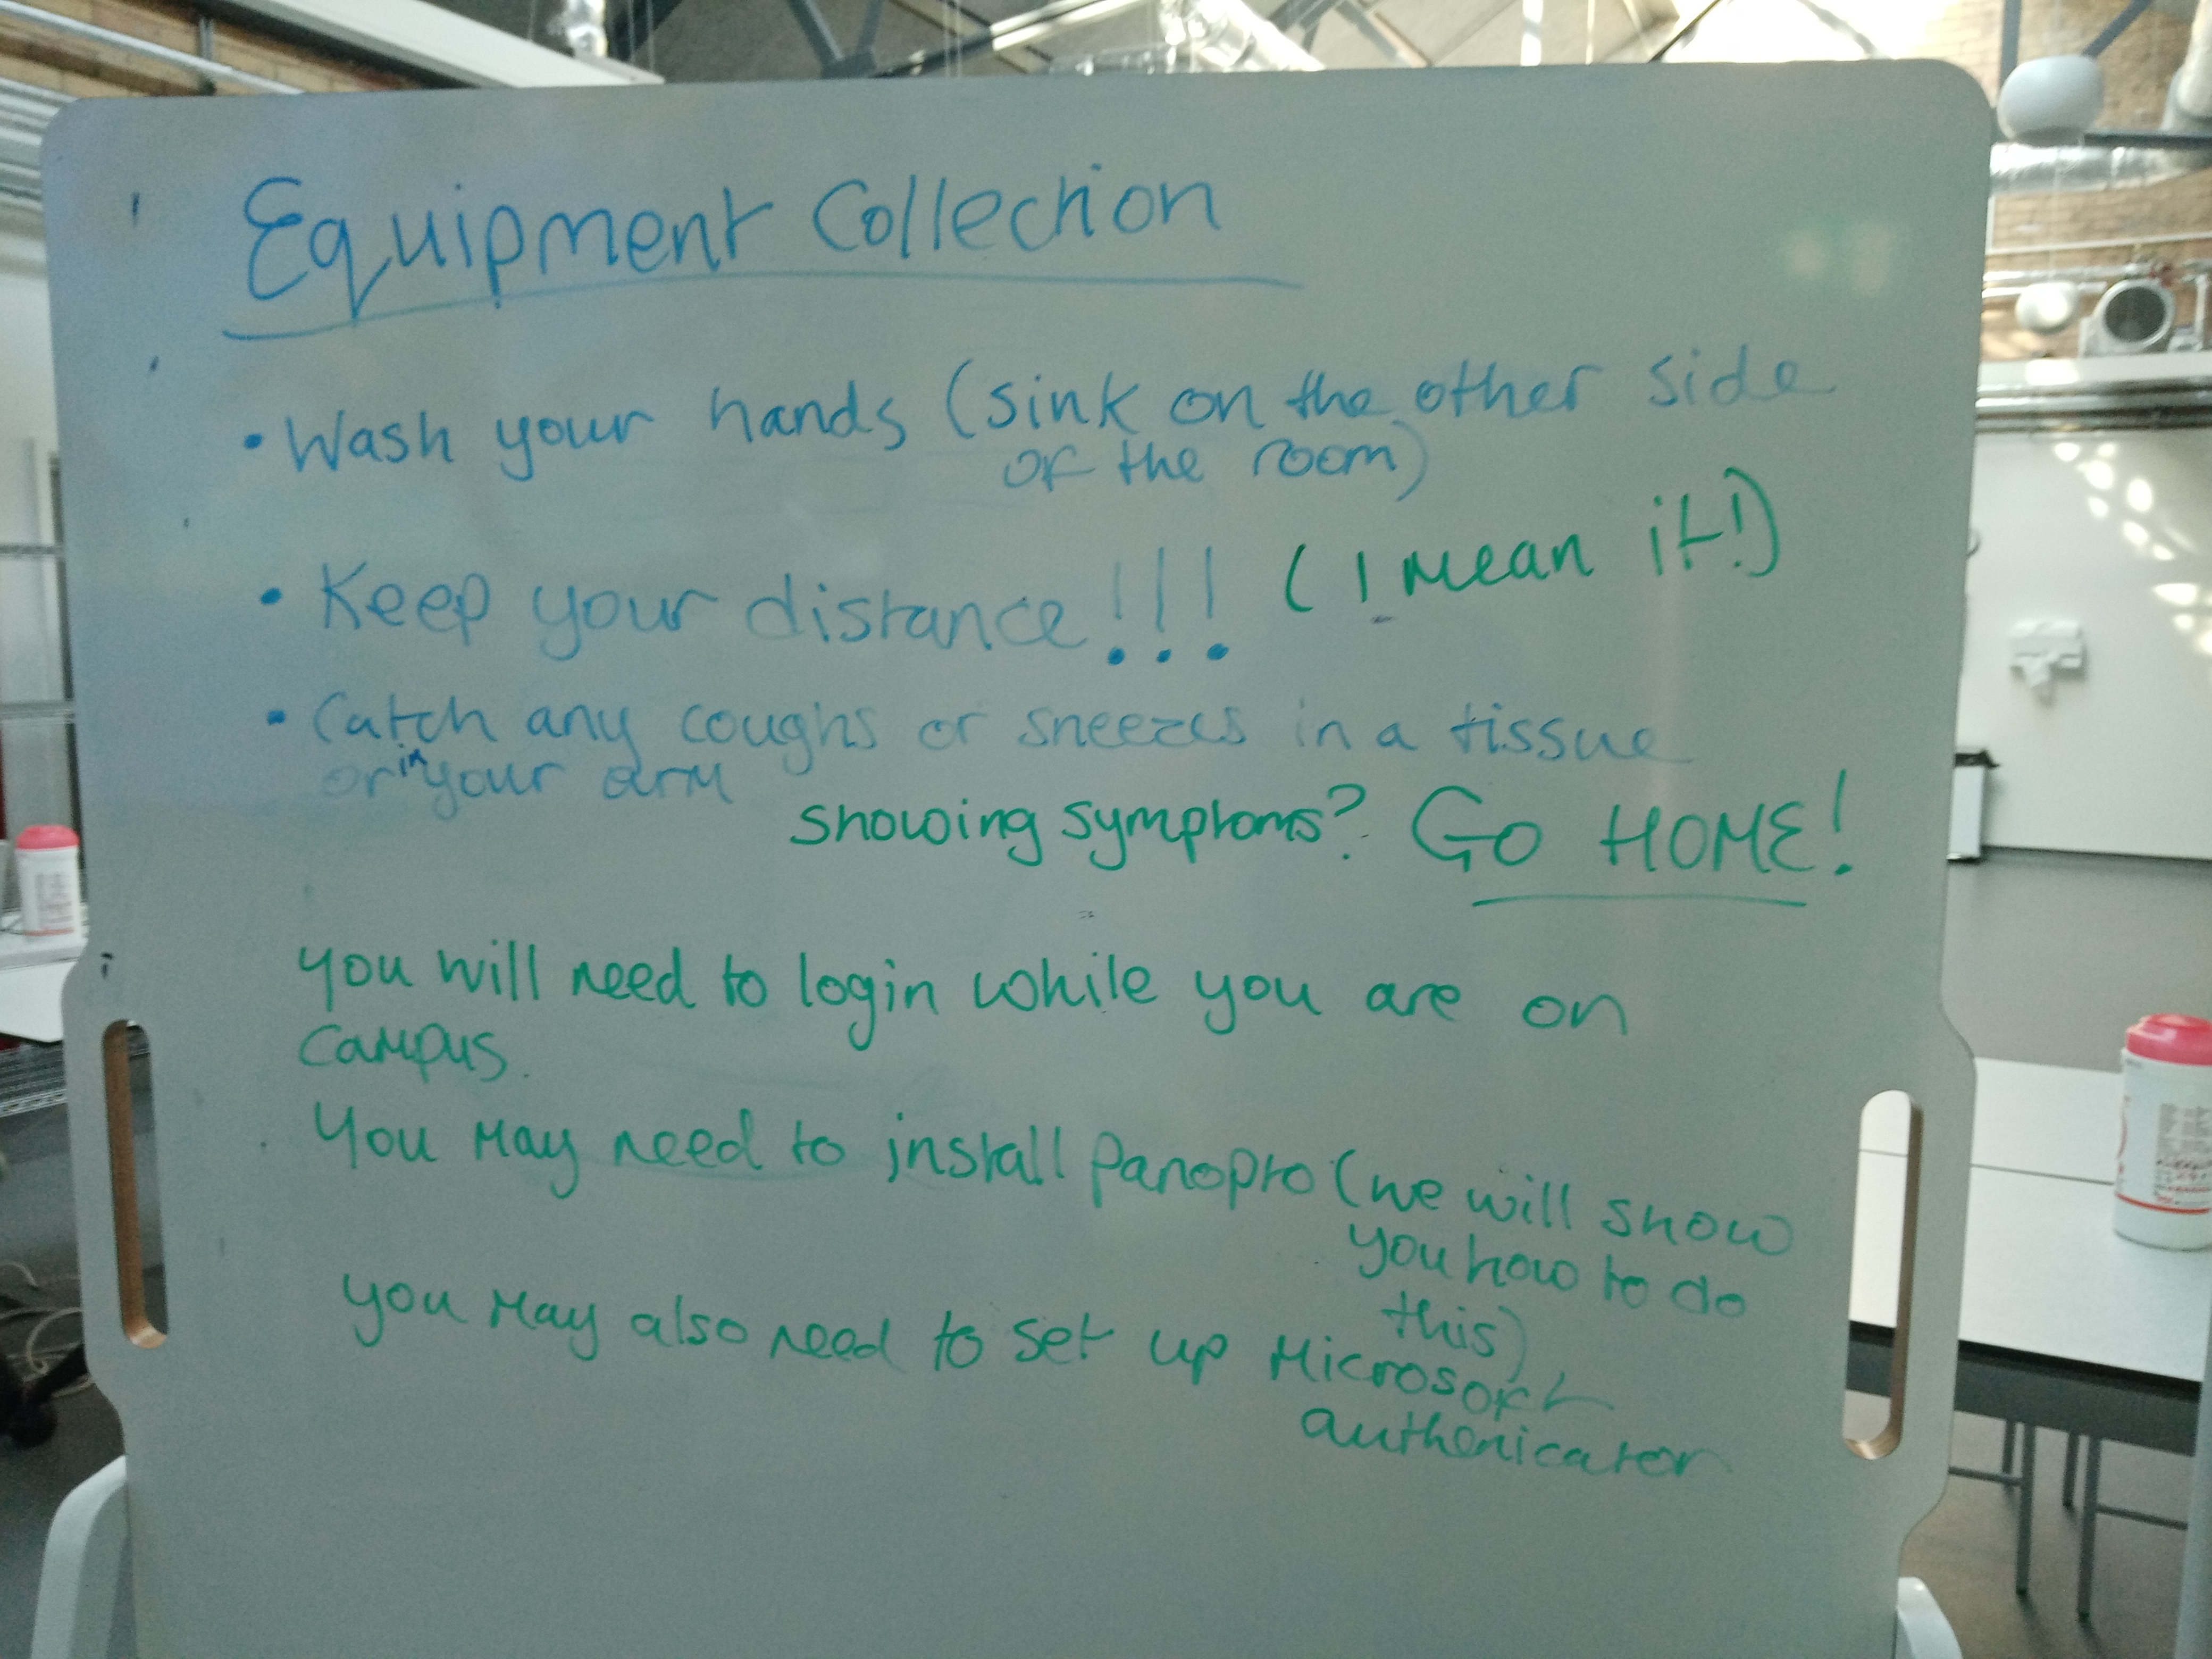 Equipment Collection
• Wash your hands (sink on the other side
of the room)
• Keep your distance!!! (I mean it!)
• Catch any coughs or sneezes in a tissue
or in your arm
showing symptoms? GO HOME!
you will need to login while you are on
campus.
You may need to install panopto (we will show
you how to do
this)
you may also need to set up Microsoft
authenicator